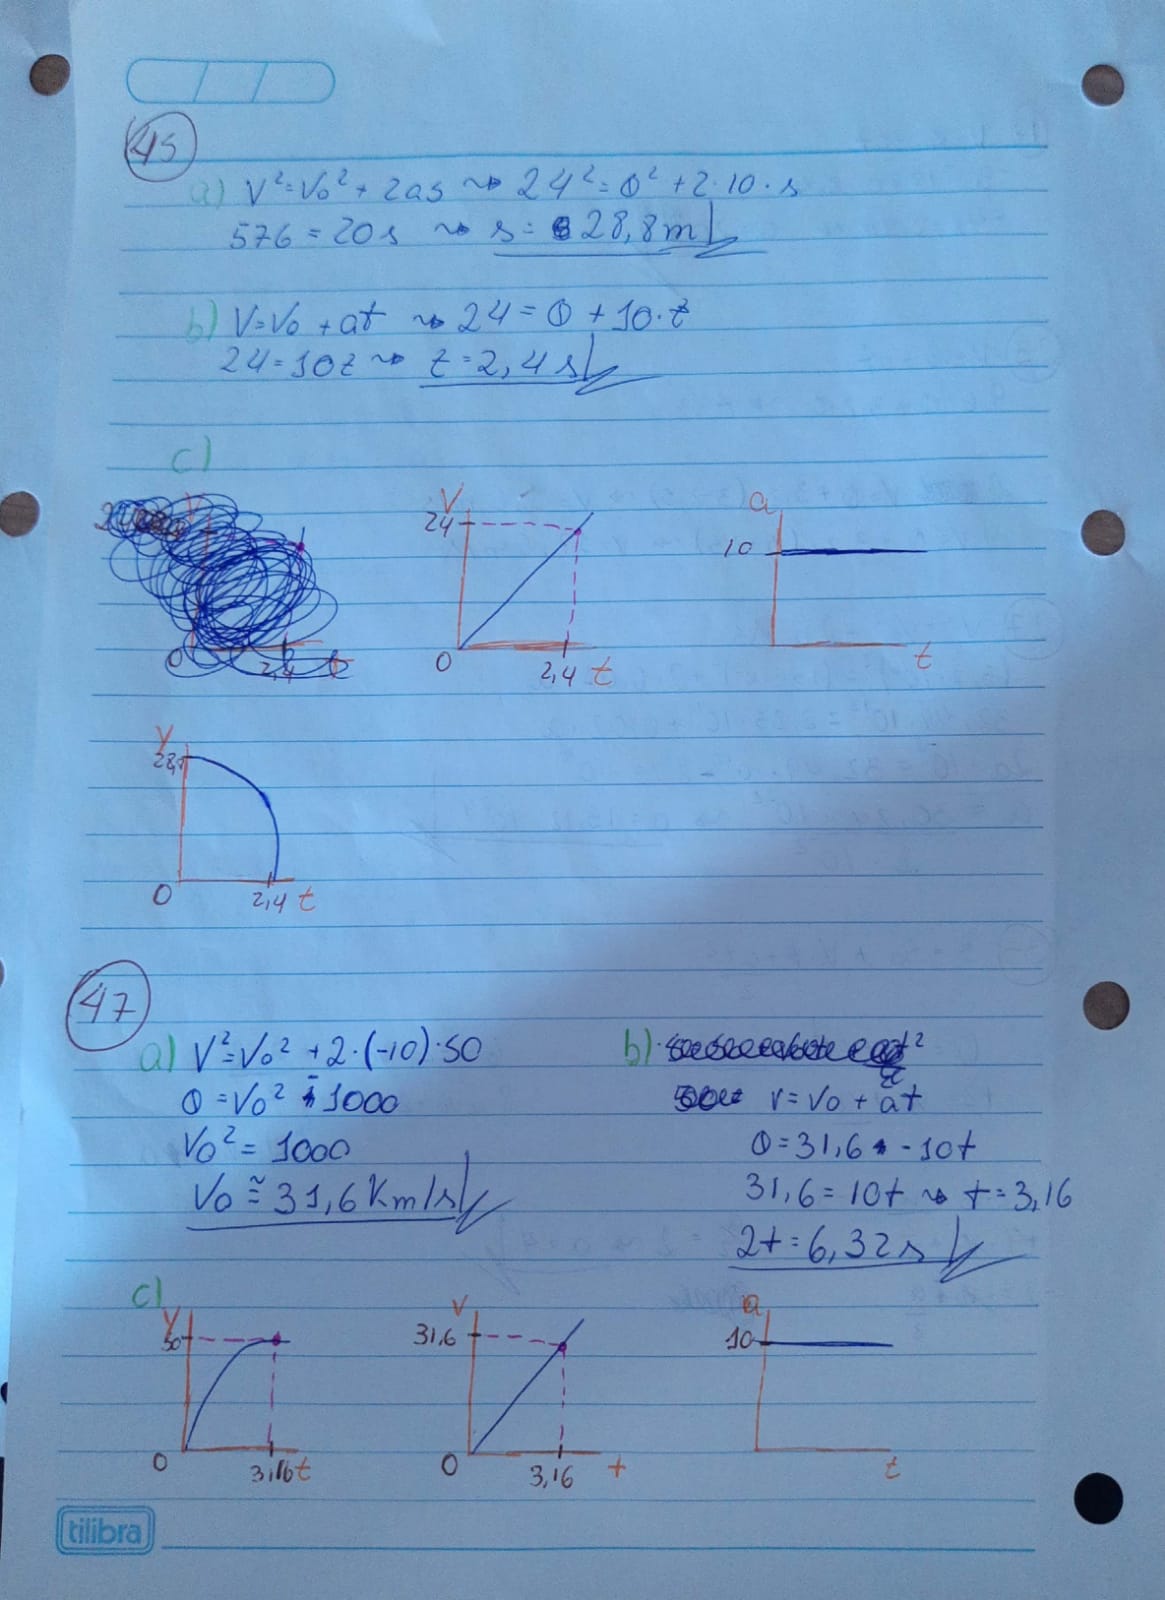 45
a) V²=V0²+2as ⇝ 24²=0²+2·10·s
576=20s ⇝ s=28,8m
b) V=V0+at ⇝ 24=0+10·t
24=10t ⇝ t=2,4s
c)
V
24
0
2,4 t
a
10
t
0
2,4 t
y
28,
0
2,4 t
47
a) V²=V0²+2·(-10)·50
0=V0²-1000
V0²=1000
V0≅31,6Km/s
b)
V=V0+at
0=31,6-10t
31,6=10t ⇝ t=3,16
2t=6,32s
c)
y
50
0
3,16 t
v
31,6
0
3,16 t
a
10
t
tilibra